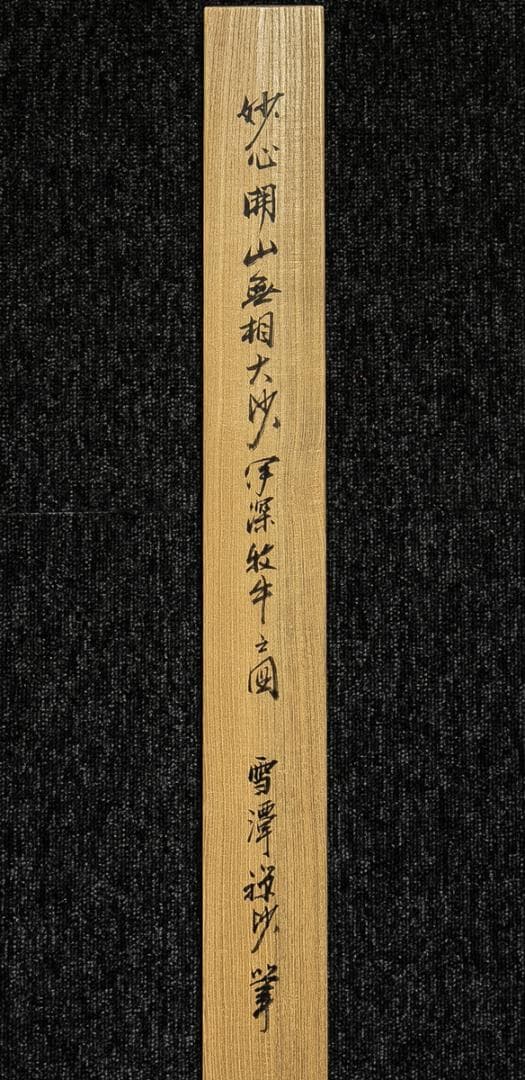 妙心開山無相大師伊深牧牛之図 雪潭禅師筆